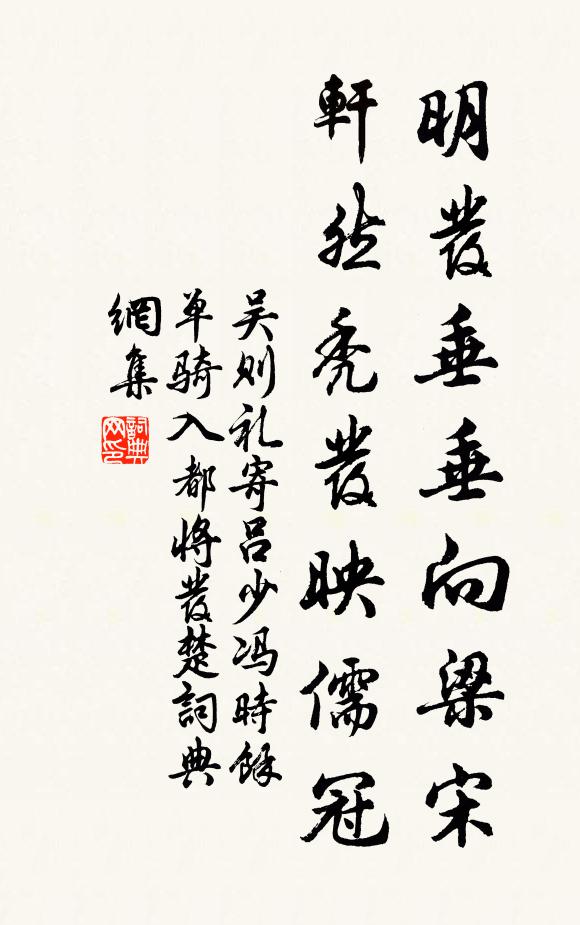 明發垂垂向梁宋
軒然禿發映儒冠
吴则礼寄吕少冯時餘
单骑入都将發楚詞典
網集
詞典网印